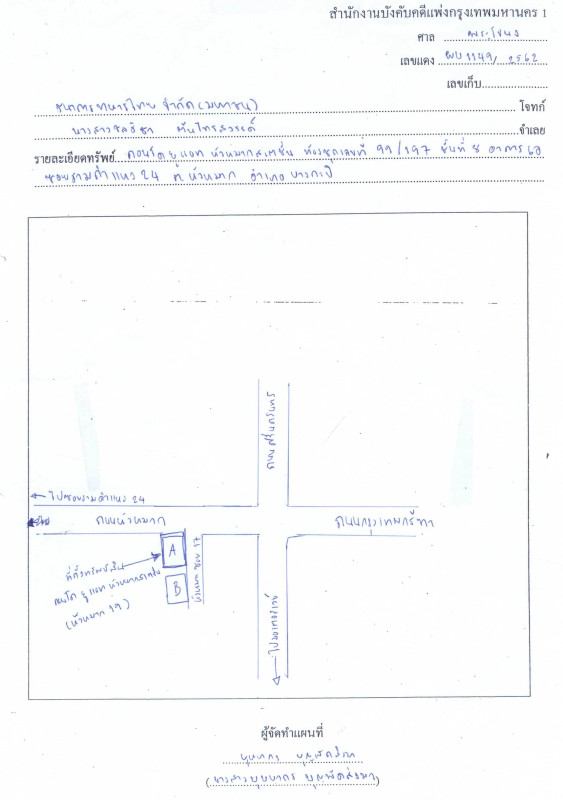 สำนักงานบังคับคดีแพ่งกรุงเทพมหานคร 1
ศาล พระโขนง
เลขแดง ผบ 1149/2562
เลขเก็บ
ธนาคารทหารไทย จำกัด (มหาชน) โจทก์
นางสาวชลธิชา จำเลย
รายละเอียดทรัพย์ คอนโด ยูแอท หัวหมากสเตชั่น ห้องชุดเลขที่ 99/197 ชั้นที่ 8 อาคารเอ
ซอยรามคำแหง 24 ต.หัวหมาก อำเภอ บางกะปิ
ถนนศรีนครินทร์
← ไปซอยรามคำแหง 24
ถนนหัวหมาก
ถนนกรุงเทพกรีฑา
A
B
หัวหมาก ซอย 17
ที่ตั้งทรัพย์สิน
คอนโด ยูแอท หัวหมากสเตชั่น
(หัวหมาก 19)
ผู้จัดทำแผนที่